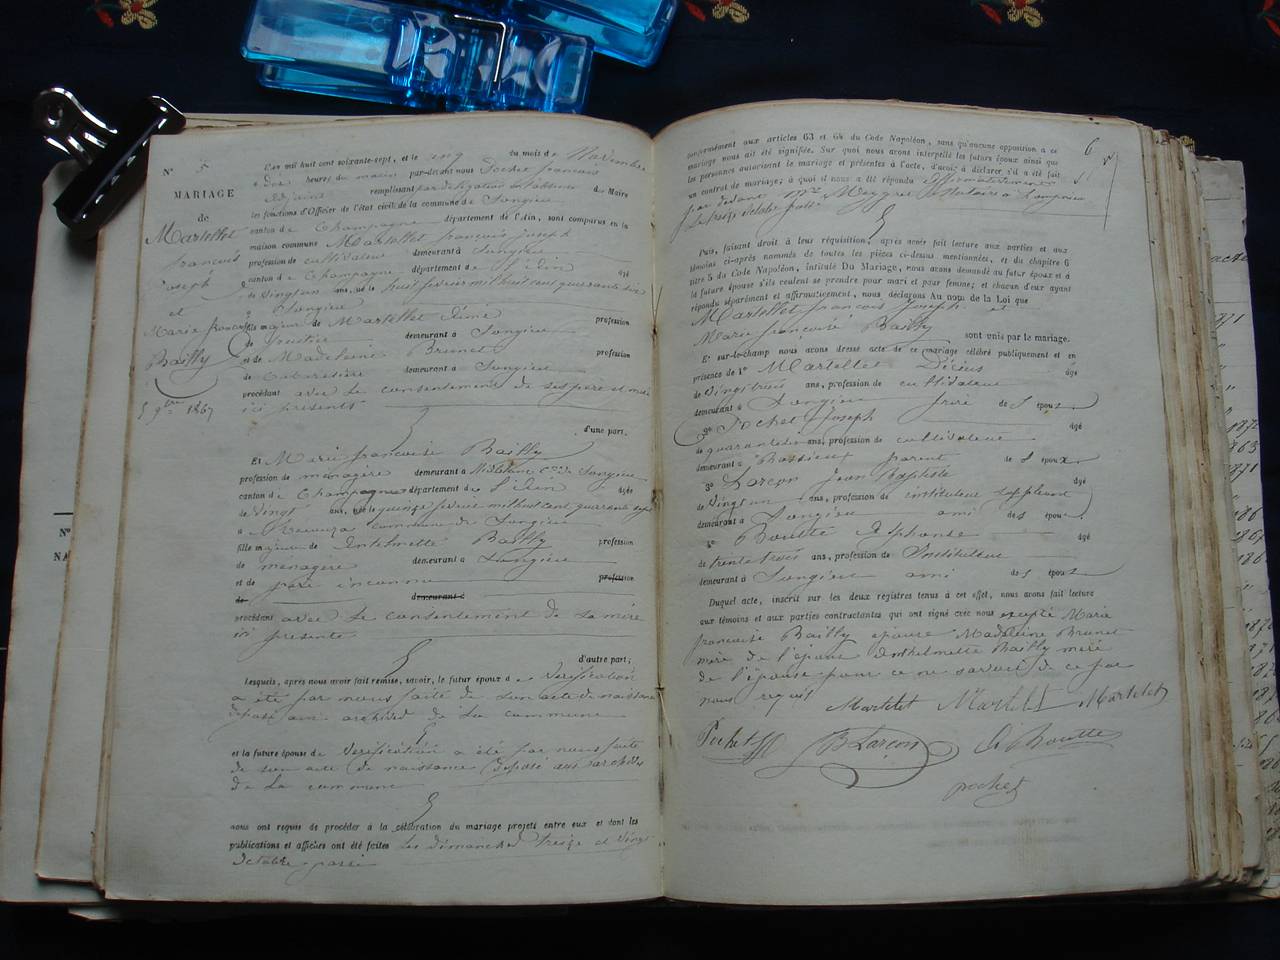 N° 5
MARIAGE
de
Martellet
françois
joseph
et
Marie françoise
Bailly
5 9bre 1867
L'an mil huit cent soixante-sept, et le cinq du mois de Novembre
à dix heures du matin par-devant nous Pochet françois
adjoint remplissant par délégation de Maire
les fonctions d'Officier de l'état civil de la commune de Songieu
canton de Champagne département de l'Ain, sont comparus en la
maison commune Martellet françois joseph
profession de cultivateur demeurant à Songieu
canton de Champagne département de l'Ain âgé
de Vingt un ans, né le huit février mil huit cent quarante six
à Songieu
fils majeur de Martellet Aimé profession
de demeurant à Songieu
et de Madeleine Brunet profession
de Cabaretière demeurant à Songieu
procédant avec le consentement de ses père et mère
ici présents
d'une part.
Et Marie françoise Bailly
profession de ménagère demeurant à Cne de Songieu
canton de Champagne département de l'Ain âgée
de Vingt ans, née le quinze février mil huit cent quarante sept
à commune de Songieu
fille majeure de Anthelmette Bailly profession
de ménagère demeurant à Songieu
et de père inconnu profession
de demeurant à
procédant avec le consentement de sa mère
ici présente
d'autre part;
Lesquels, après nous avoir fait remise, savoir, le futur époux de Vérification
a été par nous faite de son acte de naissance
déposé aux archives de la commune
et la future épouse de Vérification a été par nous faite
de son acte de naissance déposé aux archives
de la commune
nous ont requis de procéder à la célébration du mariage projeté entre eux et dont les
publications et affiches ont été faites les dimanches treize et Vingt
Octobre passé
6
conformément aux articles 63 et 64 du Code Napoléon, sans qu'aucune opposition à ce
mariage nous ait été signifiée. Sur quoi nous avons interpellé les futurs époux ainsi que
les personnes autorisant le mariage et présentes à l'acte, d'avoir à déclarer s'il a été fait
un contrat de mariage; à quoi il nous a été répondu affirmativement
par devant Me Meygret Notaire à
le treize Octobre passé
Puis, faisant droit à leur réquisition, après avoir fait lecture aux parties et aux
témoins ci-après nommés de toutes les pièces ci-dessus mentionnées, et du chapitre 6
titre 5 du Code Napoléon, intitulé Du Mariage, nous avons demandé au futur époux et à
la future épouse s'ils veulent se prendre pour mari et pour femme; et chacun d'eux ayant
répondu séparément et affirmativement, nous déclarons Au nom de la Loi que
Martellet françois Joseph et
Marie françoise Bailly sont unis par le mariage.
Et sur-le-champ nous avons dressé acte de ce mariage célébré publiquement et en
présence de 1° Martellet Décius âgé
de Vingt trois ans, profession de cultivateur
demeurant à Songieu frère de l'époux
2° Pochet Joseph âgé
de quarante ans, profession de cultivateur
demeurant à Bassieu parent de l'époux
3° Larçon Jean Baptiste âgé
de Vingt un ans, profession de instituteur suppléant
demeurant à Songieu ami de l'époux
4° Boutte Alphonse âgé
de trente trois ans, profession de Instituteur
demeurant à Songieu ami de l'époux
Duquel acte, inscrit sur les deux registres tenus à cet effet, nous avons fait lecture
aux témoins et aux parties contractantes qui ont signé avec nous excepté Marie
françoise Bailly épouse Madeleine Brunet
mère de l'époux Anthelmette Bailly mère
de l'épouse pour ne savoir de ce par
nous requis
Martelet Martelet Martelet
Pochet JH B Larçon A Boutte
pochet